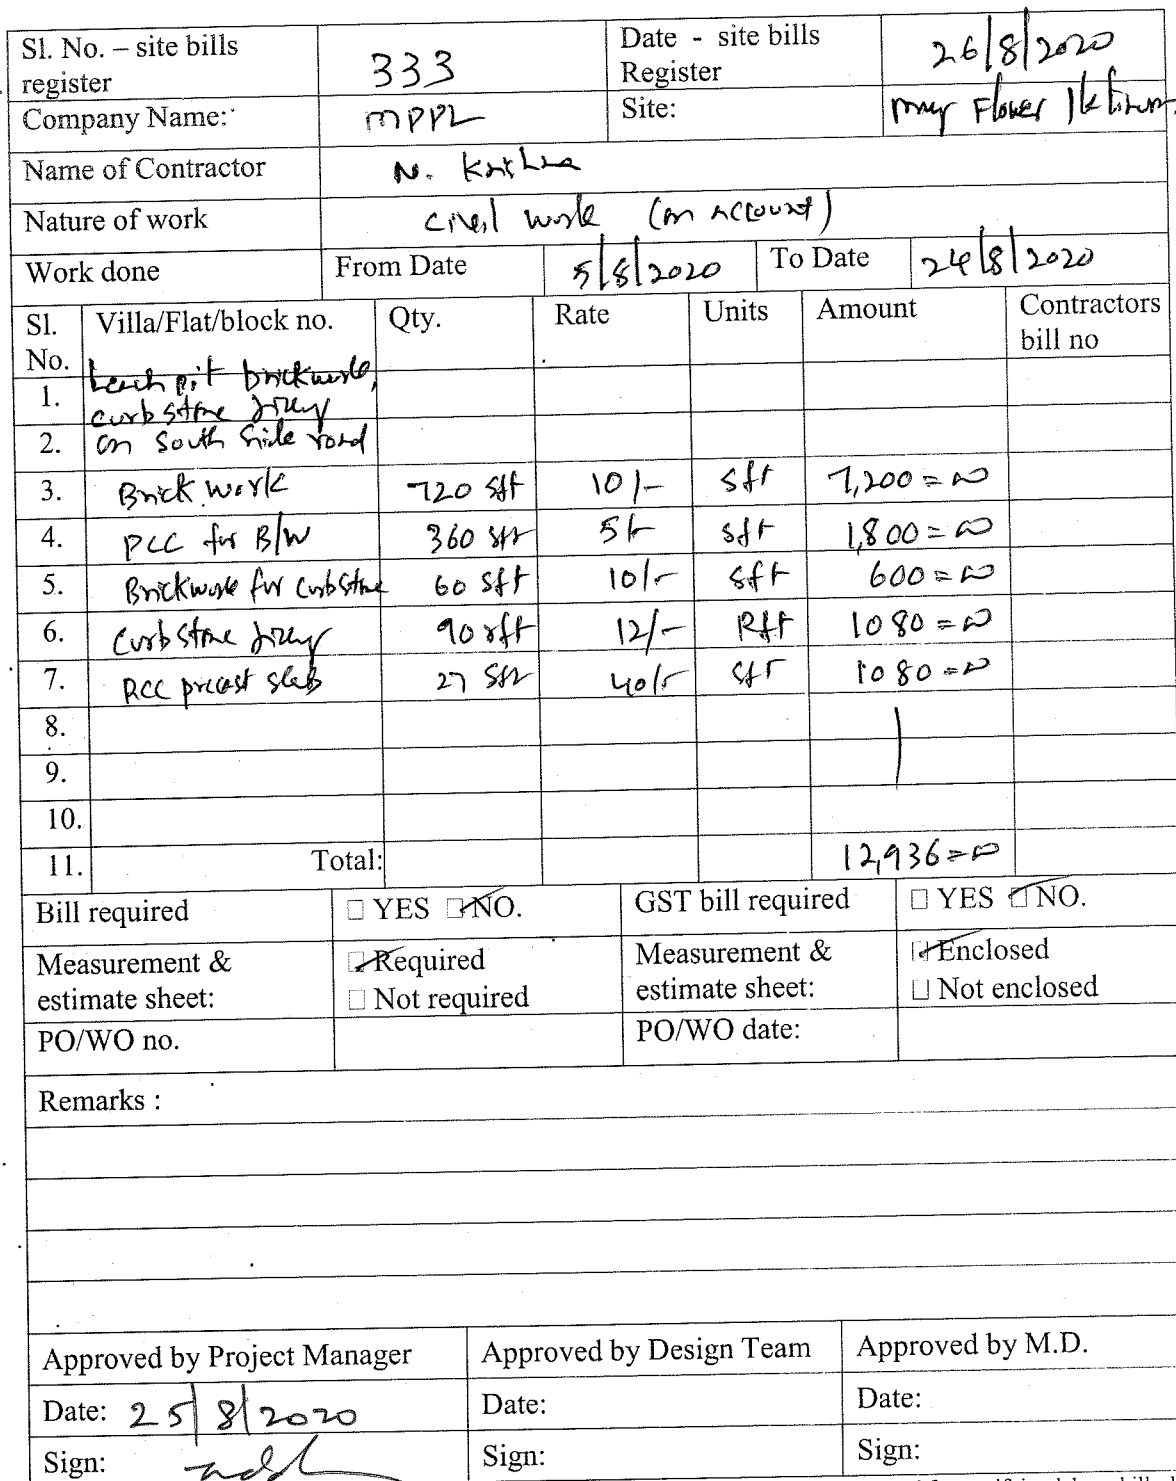 Sl. No. – site bills register 333 Date - site bills Register 26/8/2020
Company Name: MPPL Site: May Flower
Name of Contractor N.
Nature of work civil work (on account)
Work done From Date 5/8/2020 To Date 24/8/2020
Sl. No. Villa/Flat/block no. Qty. Rate Units Amount Contractors bill no
Leach pit brickwork,
1. curb stone
2. on South side road
3. Brick work 720 sft 10/- sft 7,200=00
4. PCC for B/W 360 sft 5/- sft 1,800=00
5. Brickwork for curbstone 60 sft 10/- sft 600=00
6. Curb stone 90 rft 12/- Rft 1080=00
7. RCC precast slab 27 sft 40/- sft 1080=00
8.
9.
10.
11. Total: 12,936=00
Bill required □ YES □ NO. GST bill required □ YES □ NO.
Measurement & estimate sheet: □ Required □ Not required Measurement & estimate sheet: □ Enclosed □ Not enclosed
PO/WO no. PO/WO date:
Remarks :
Approved by Project Manager Approved by Design Team Approved by M.D.
Date: 25/8/2020 Date: Date:
Sign: Sign: Sign: